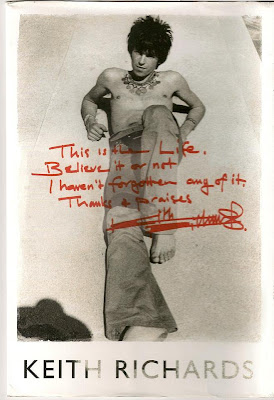 This is the Life.
Believe it or not
I haven't forgotten any of it.
Thanks & praises
KEITH RICHARDS